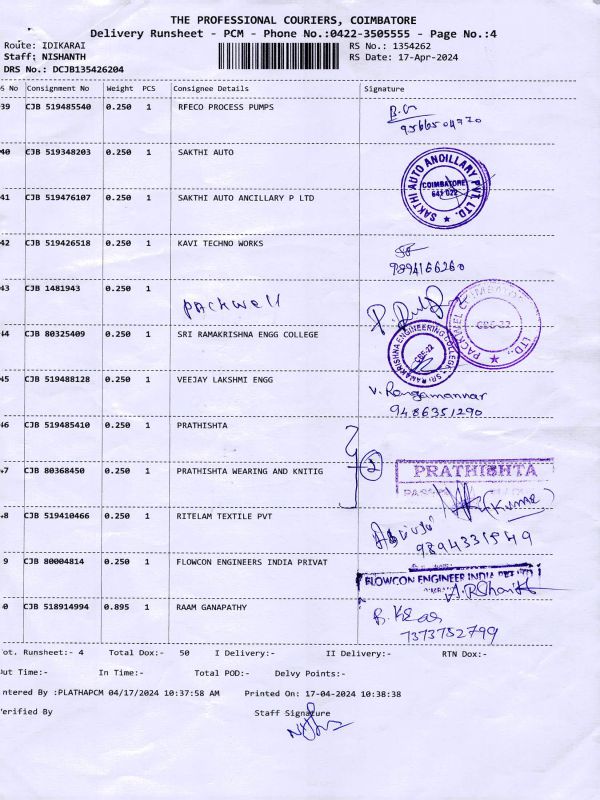 THE PROFESSIONAL COURIERS, COIMBATORE
Delivery Runsheet - PCM - Phone No.:0422-3505555 - Page No.:4
Route: IDIKARAI RS No.: 1354262
Staff: NISHANTH RS Date: 17-Apr-2024
DRS No.: DCJB135426204
S No Consignment No Weight PCS Consignee Details Signature
39 CJB 519485540 0.250 1 RFECO PROCESS PUMPS
40 CJB 519348203 0.250 1 SAKTHI AUTO
SAKTHI AUTO ANCILLARY PVT. LTD.
COIMBATORE
641 022
41 CJB 519476107 0.250 1 SAKTHI AUTO ANCILLARY P LTD
42 CJB 519426518 0.250 1 KAVI TECHNO WORKS
9894166260
43 CJB 1481943 0.250 1
packwell
44 CJB 80325409 0.250 1 SRI RAMAKRISHNA ENGG COLLEGE
SRI RAMAKRISHNA ENGINEERING COLLEGE
CBE-22
CBE-22
45 CJB 519488128 0.250 1 VEEJAY LAKSHMI ENGG
V. Rangamannar
9486351290
46 CJB 519485410 0.250 1 PRATHISHTA
47 CJB 80368450 0.250 1 PRATHISHTA WEARING AND KNITIG
2
PRATHISHTA
(Kumar)
48 CJB 519410466 0.250 1 RITELAM TEXTILE PVT
9 CJB 80004814 0.250 1 FLOWCON ENGINEERS INDIA PRIVAT
FLOWCON ENGINEER INDIA PVT LTD
0 CJB 518914994 0.895 1 RAAM GANAPATHY
7373752799
ot. Runsheet:- 4 Total Dox:- 50 I Delivery:- II Delivery:- RTN Dox:-
ut Time:- In Time:- Total POD:- Delvy Points:-
ntered By :PLATHAPCM 04/17/2024 10:37:58 AM Printed On: 17-04-2024 10:38:38
erified By Staff Signature